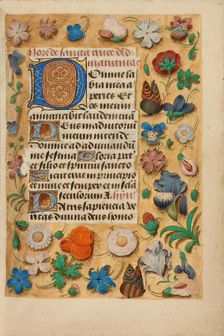 Hore de sancta cruce Ad
matutinas
Domine la
bia mea a
peries Et os meum
annunciabit laudem tuam
Deus in adiutorium
meum intende
me festina Gloria pa
tri et filio et spiritui sancto
Sicut erat in principio
et nunc et semper et in se
seculorum A
Patris sapientia ve
ritas diuina deus homo